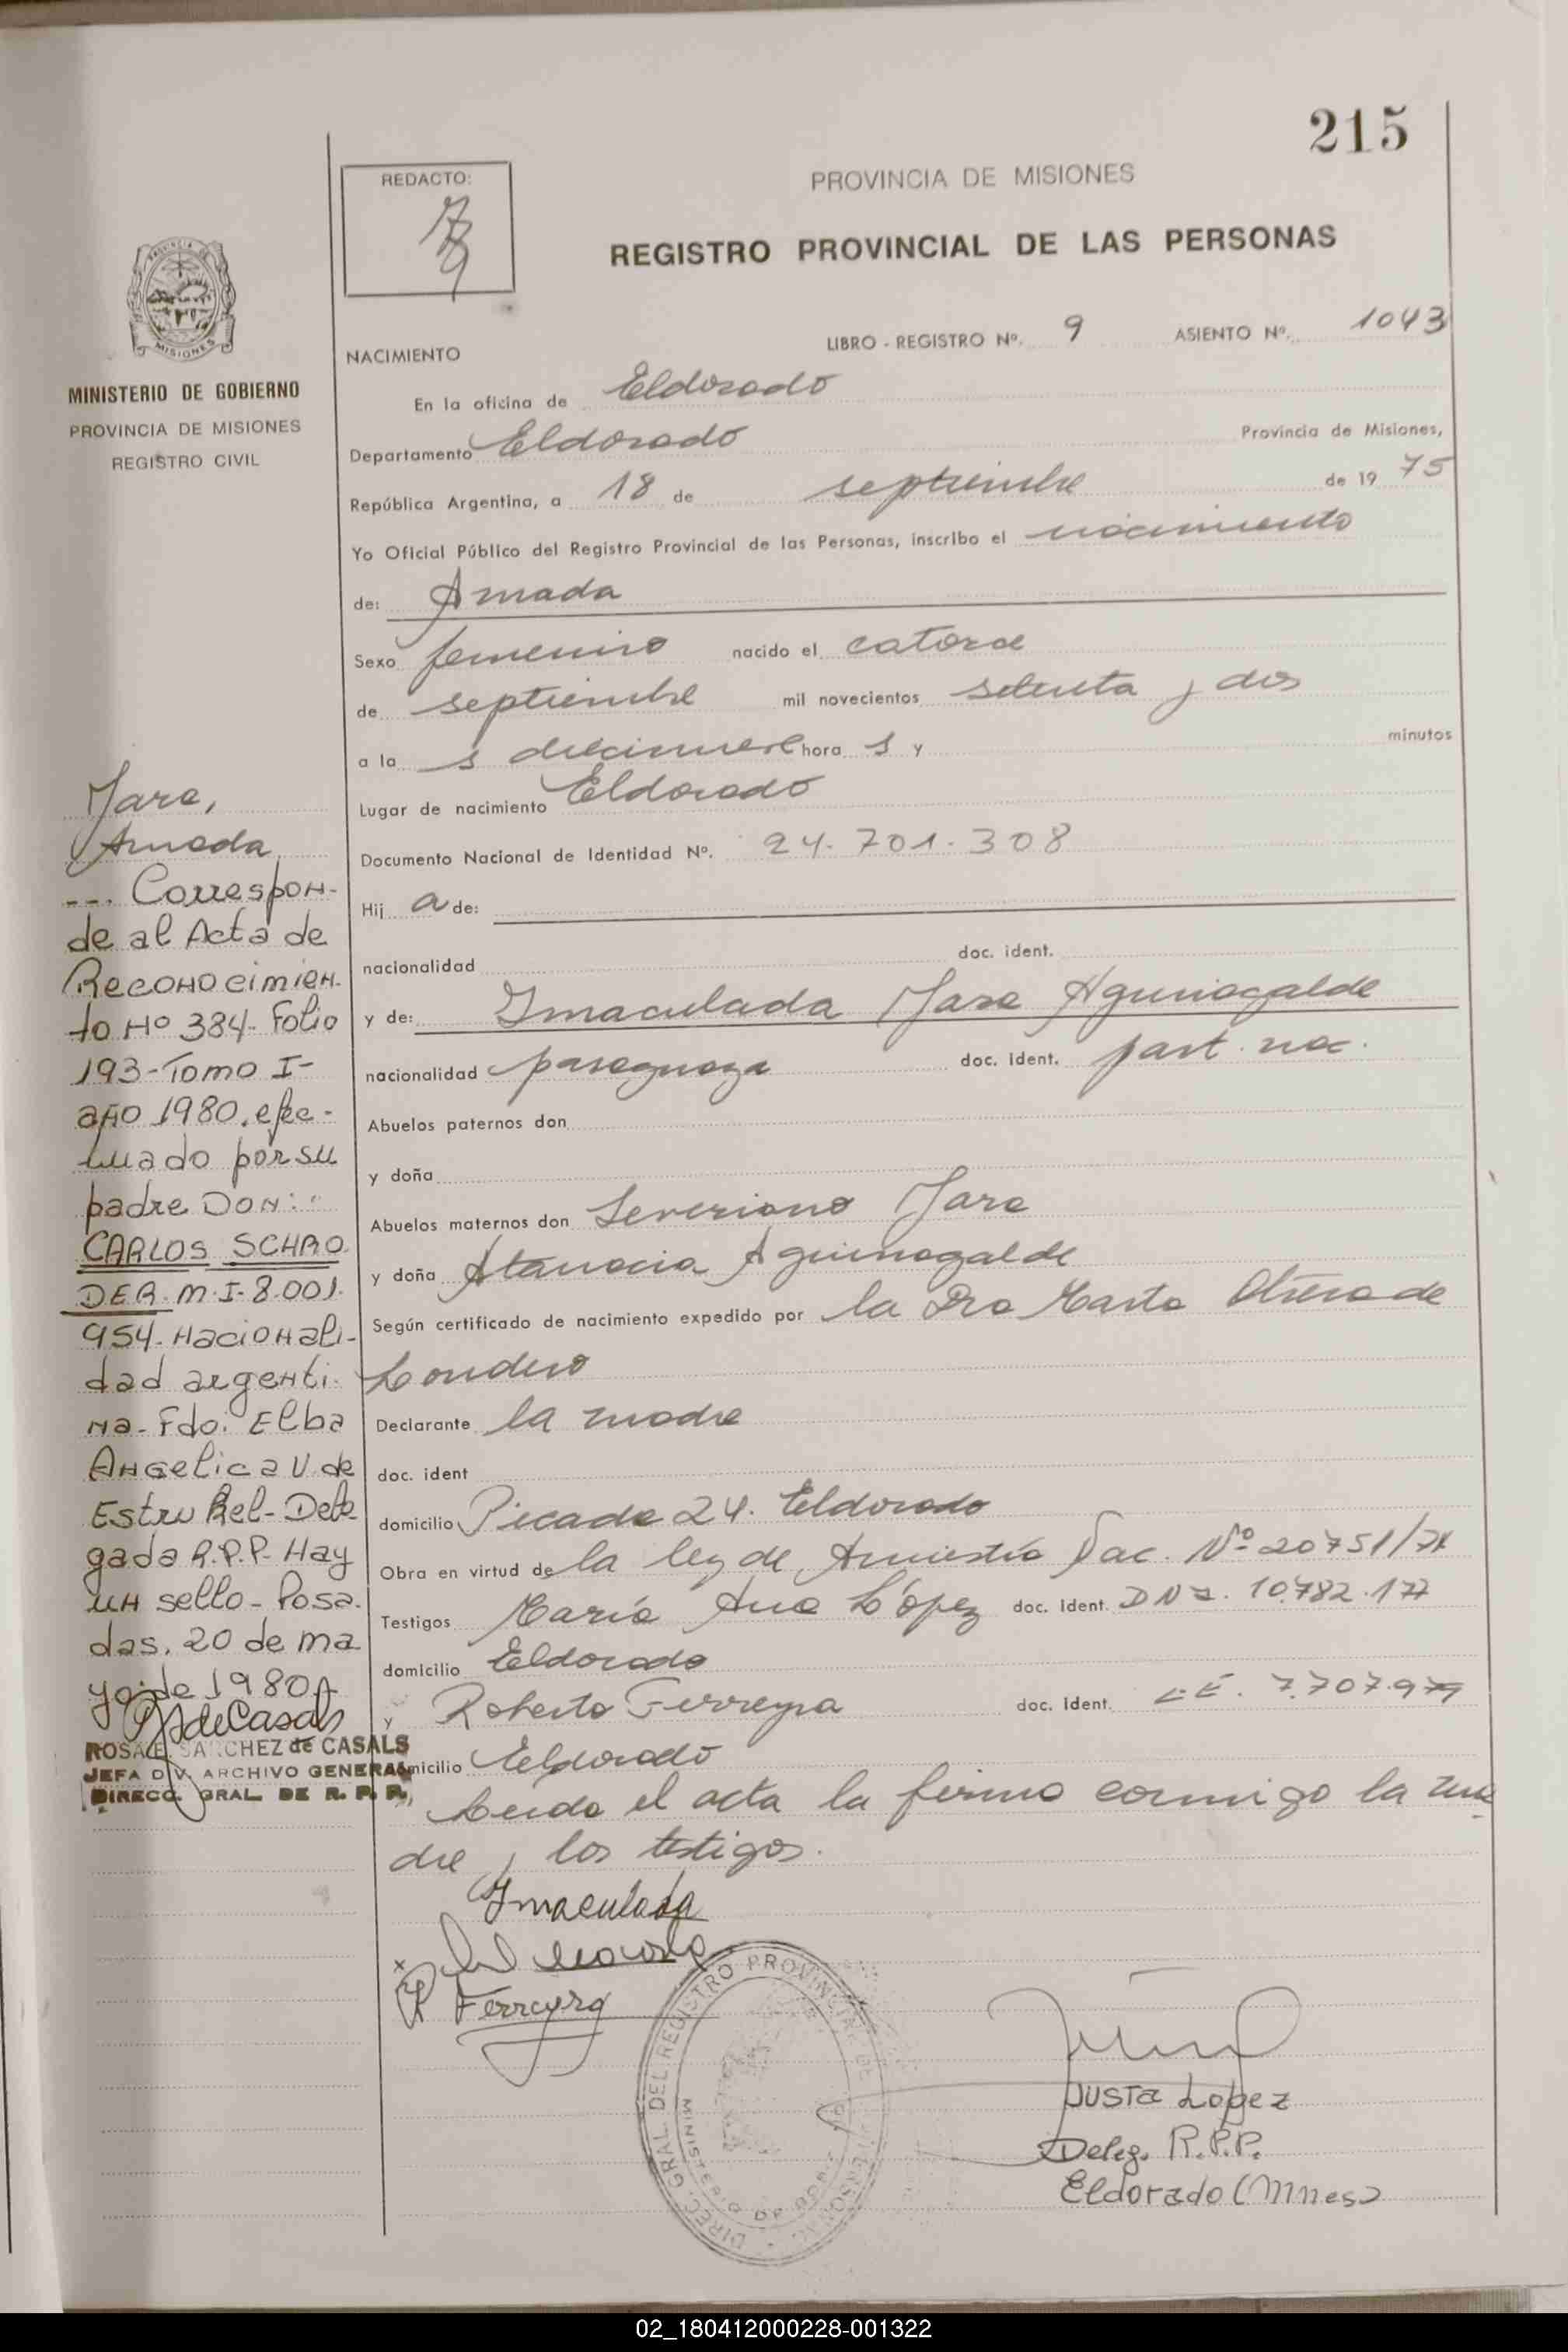 215
REDACTO:
PROVINCIA DE MISIONES
REGISTRO PROVINCIAL DE LAS PERSONAS
MISIONES
MINISTERIO DE GOBIERNO
PROVINCIA DE MISIONES
REGISTRO CIVIL
LIBRO - REGISTRO Nº. 9 ASIENTO Nº. 1043
NACIMIENTO
En la oficina de Eldorado
Departamento Eldorado Provincia de Misiones,
República Argentina, a 18 de septiembre de 19 75
Yo Oficial Público del Registro Provincial de las Personas, inscribo el nacimiento
de: Amada
Sexo femenino nacido el catorce
de septiembre mil novecientos setenta y dos
a la s diecinueve hora s y minutos
Lugar de nacimiento Eldorado
Documento Nacional de Identidad Nº. 24.701.308
Hij a de:
nacionalidad doc. ident.
y de: Imaculada Jara Aguinagalde
nacionalidad paraguaya doc. ident. part. nac.
Abuelos paternos don
y doña
Abuelos maternos don Severiano Jara
y doña Atanacia Aguinagalde
Según certificado de nacimiento expedido por la Dra Marta Otero de
Londero
Declarante la madre
doc. ident
domicilio Picada 24. Eldorado
Obra en virtud de la ley de Amnistía Nac. Nº 20751/74
Testigos María Ana López doc. ident. DNI. 10.782.177
domicilio Eldorado
y Roberto Ferreyra doc. ident. L.E. 7.707.979
domicilio Eldorado
Leida el acta la firma conmigo la ma
dre y los testigos.
Imaculada
Ferreyra
Jara,
Amada
---. Correspon-
de al Acta de
Reconocimien-
to Nº 384- Folio
193-Tomo I-
año 1980. efec-
tuado por su
padre Don:
CARLOS SCHRO
DER. M.I-8.001.
954- Nacionali-
dad argenti-
na- Fdo: Elba
Angelica V. de
Estru Bel- Dele
gada R.P.P- Hay
un sello- Posa.
das, 20 de ma
yo de 1980
ROSA E. SANCHEZ de CASALS
JEFA DIV. ARCHIVO GENERAL
DIRECC. GRAL. DE R. P. P.
DIREC. GRAL. DEL REGISTRO PROVINCIAL DE LAS PERSONAS
Justa Lopez
Deleg. R.P.P.
Eldorado (Mnes)
02_180412000228-001322